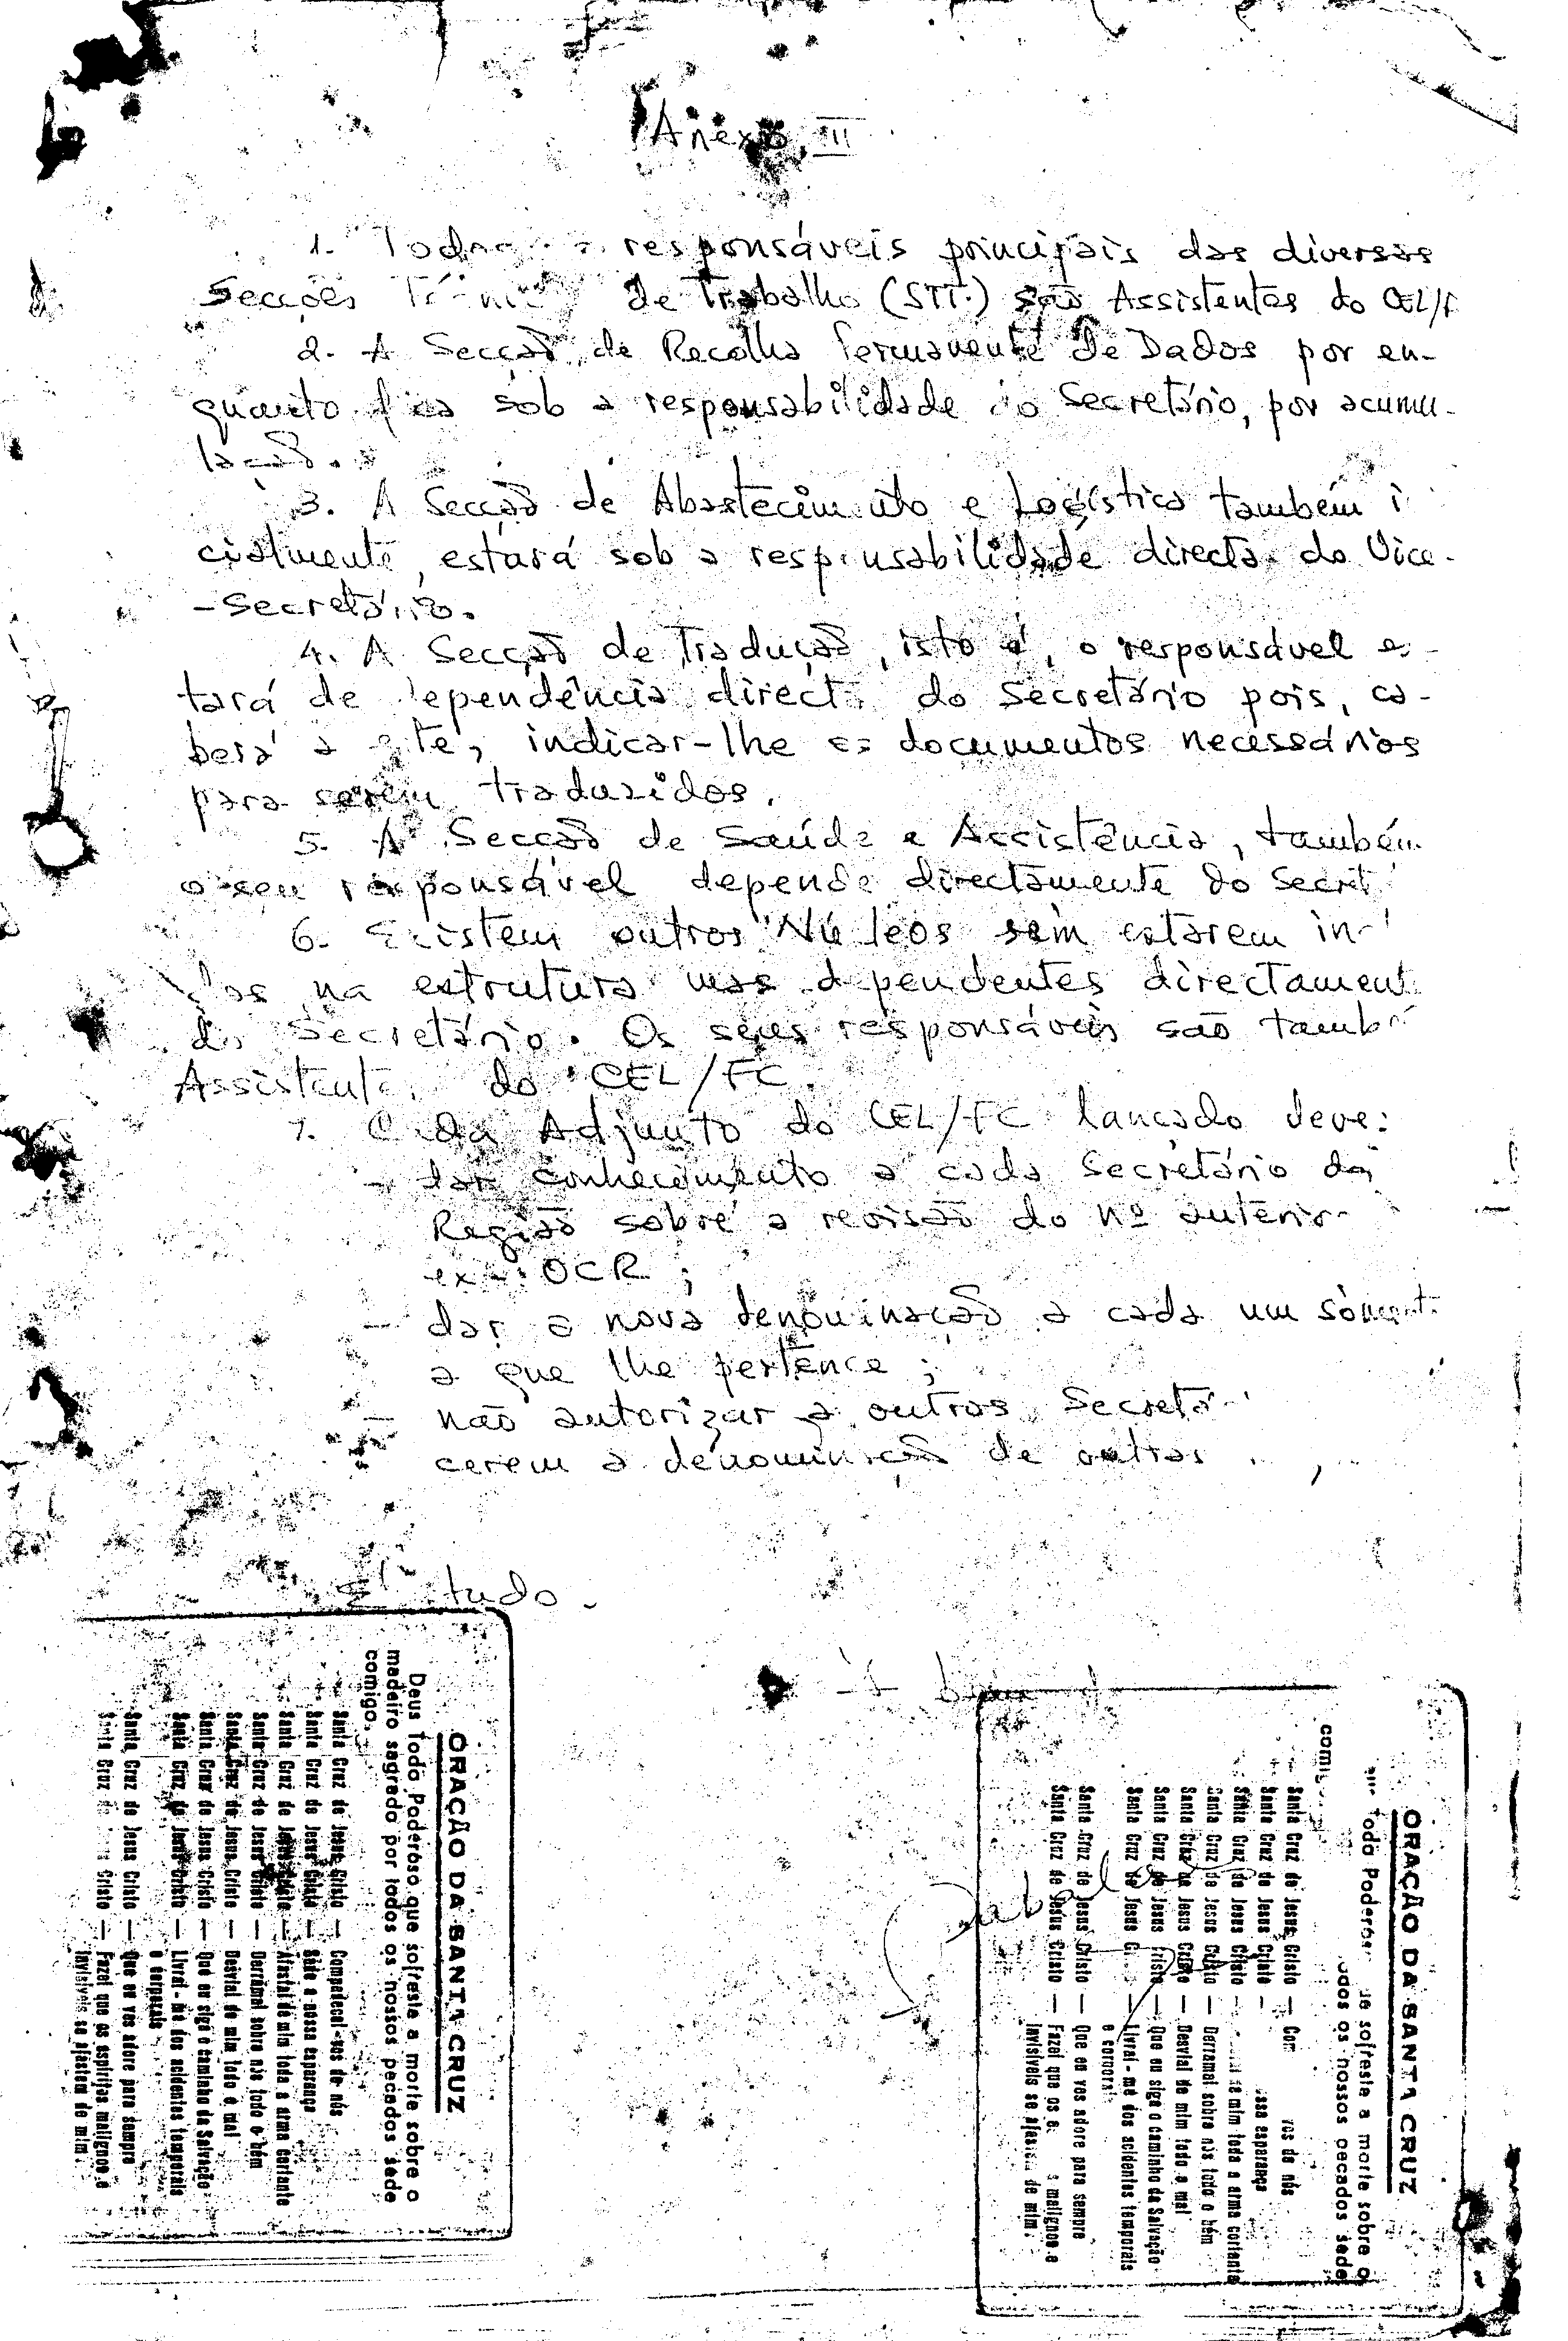 Anexo III
1. Todos responsáveis principais das diversas
Secções de Trabalho (STT.) são Assistentes do CEL/F
2. A Secção de Recolha Permanente de Dados por en-
quanto fica sob a responsabilidade do Secretário, por acumu-
lação.
3. A Secção de Abastecimento e Logística também i
cialmente, estará sob a responsabilidade directa do Vice-
-Secretário.
4. A Secção de Tradução, isto é, o responsável es-
tará de dependência directa do Secretário pois, ca-
berá a este, indicar-lhe os documentos necessários
para serem traduzidos.
5. A Secção de Saúde e Assistência, também
o seu responsável depende directamente do Secret
6. Existem outros Núcleos sem estarem in-
dos na estrutura mas dependentes directament
do Secretário. Os seus responsáveis são també
Assistente do CEL/FC.
7. Cada Adjunto do CEL/FC lançado deve:
- dar conhecimento a cada Secretário da
Região sobre a revisão do nº anterior
OCR;
- dar a nova denominação a cada um sòment
a que lhe pertence;
- não autorizar a outros Secretá
cerem a denominação de outras
É tudo.
ORAÇÃO DA SANTA CRUZ
Deus Todo Poderoso que sofreste a morte sobre o
madeiro sagrado por todos os nossos pecados sede
comigo.
Santa Cruz de Jesus Cristo — Compadecei-vos de nós
Santa Cruz de Jesus Cristo — Sêde a nossa esperança
Santa Cruz de Jesus Cristo — Afastai de mim toda a arma cortante
Santa Cruz de Jesus Cristo — Derramai sobre nós todo o bém
Santa Cruz de Jesus Cristo — Desviai de mim todo o mal
Santa Cruz de Jesus Cristo — Que eu siga o caminho da Salvação
Santa Cruz de Jesus Cristo — Livrai-me dos acidentes temporais
e corporais
Santa Cruz de Jesus Cristo — Que eu vos adore para sempre
Santa Cruz de Jesus Cristo — Fazei que os espíritos malignos e
invisíveis se afastem de mim.
ORAÇÃO DA SANTA CRUZ
Todo Poderoso que sofreste a morte sobre o
todos os nossos pecados sede
comig
Santa Cruz de Jesus Cristo — Com vos de nós
Santa Cruz de Jesus Cristo — ssa esperança
Santa Cruz de Jesus Cristo — de mim toda a arma cortante
Santa Cruz de Jesus Cristo — Derramai sobre nós todo o bém
Santa Cruz de Jesus Cristo — Desviai de mim todo o mal
Santa Cruz de Jesus Cristo — Que eu siga o caminho da Salvação
Santa Cruz de Jesus C — Livrai-me dos acidentes temporais
e corporai
Santa Cruz de Jesus Cristo — Que eu vos adore para sempre
Santa Cruz de Jesus Cristo — Fazei que os es s malignos e
invisíveis se afastem de mim.